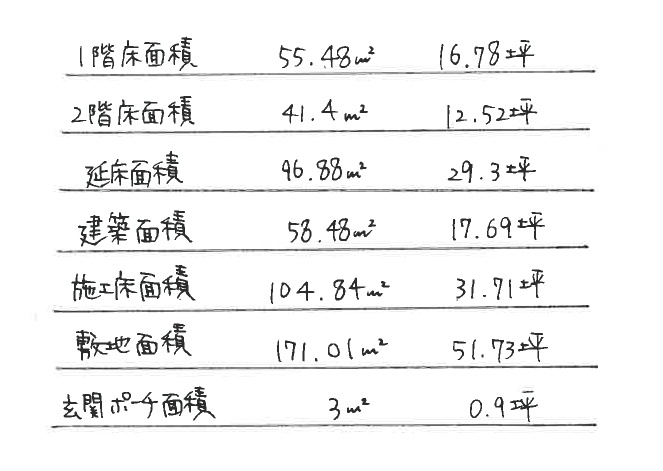 1階床面積 55.48㎡ 16.78坪
2階床面積 41.4㎡ 12.52坪
延床面積 96.88㎡ 29.3坪
建築面積 58.48㎡ 17.69坪
施工床面積 104.84㎡ 31.71坪
敷地面積 171.01㎡ 51.73坪
玄関ポーチ面積 3㎡ 0.9坪